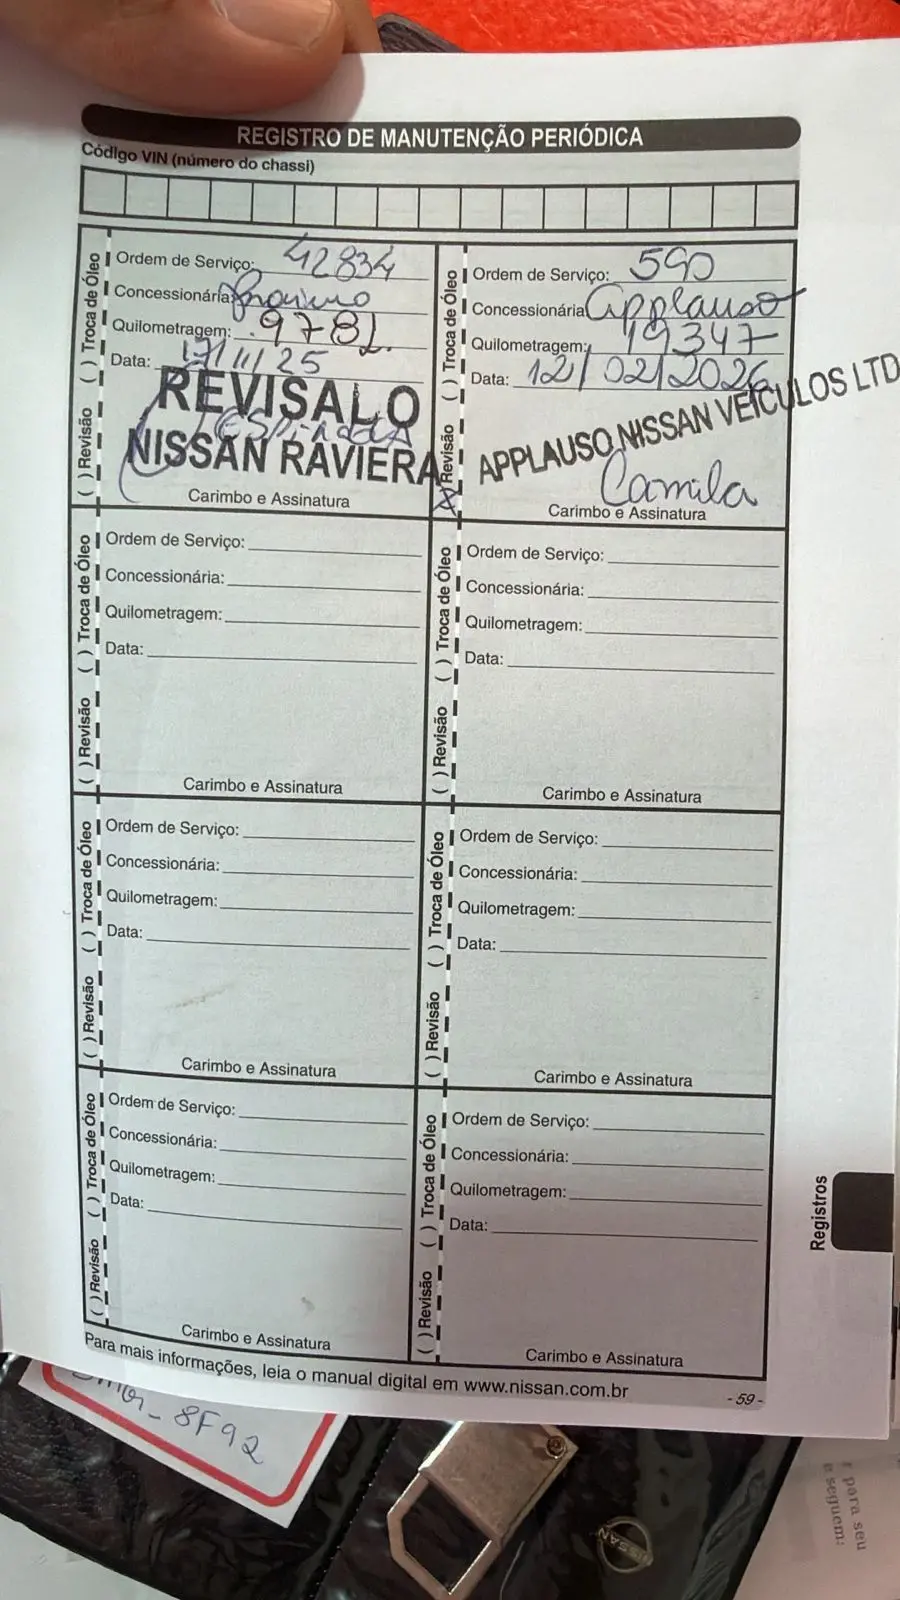 REGISTRO DE MANUTENÇÃO PERIÓDICA
Código VIN (número do chassi)
( ) Revisão ( ) Troca de Óleo
Ordem de Serviço: 42834
Concessionária:
Quilometragem: 9782
Data: 17/11/25
REVISALO
NISSAN RAVIERA
Carimbo e Assinatura
(X) Revisão ( ) Troca de Óleo
Ordem de Serviço: 590
Concessionária: Applauso
Quilometragem: 19347
Data: 12/02/2026
APPLAUSO NISSAN VEICULOS LTD
Camila
Carimbo e Assinatura
( ) Revisão ( ) Troca de Óleo
Ordem de Serviço:
Concessionária:
Quilometragem:
Data:
Carimbo e Assinatura
( ) Revisão ( ) Troca de Óleo
Ordem de Serviço:
Concessionária:
Quilometragem:
Data:
Carimbo e Assinatura
( ) Revisão ( ) Troca de Óleo
Ordem de Serviço:
Concessionária:
Quilometragem:
Data:
Carimbo e Assinatura
( ) Revisão ( ) Troca de Óleo
Ordem de Serviço:
Concessionária:
Quilometragem:
Data:
Carimbo e Assinatura
( ) Revisão ( ) Troca de Óleo
Ordem de Serviço:
Concessionária:
Quilometragem:
Data:
Carimbo e Assinatura
( ) Revisão ( ) Troca de Óleo
Ordem de Serviço:
Concessionária:
Quilometragem:
Data:
Carimbo e Assinatura
Registros
Para mais informações, leia o manual digital em www.nissan.com.br
- 59 -
8F92
NISSAN
para seu
e seguem: